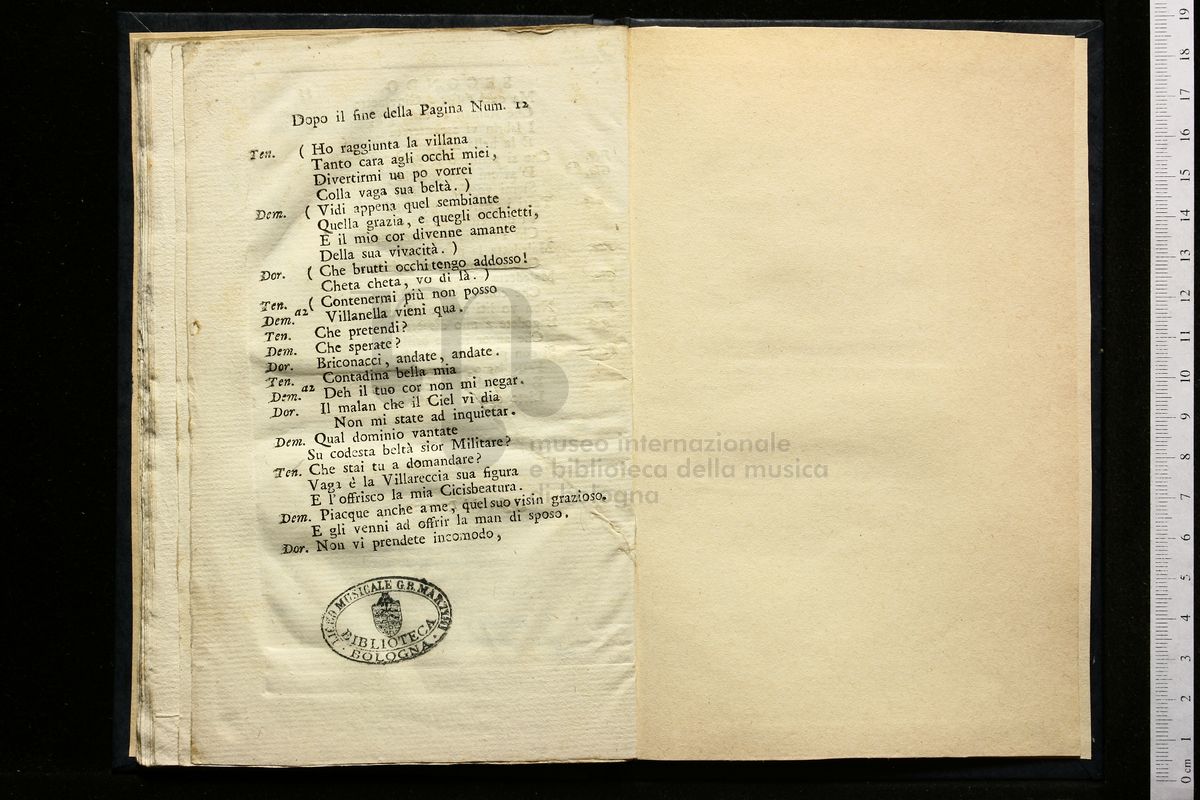 Dopo il fine della Pagina Num. 12
Ten. ( Ho raggiunta la villana
Tanto cara agli occhi miei,
Divertirmi un po vorrei
Colla vaga sua beltà. )
Dem. ( Vidi appena quel sembiante
Quella grazia, e quegli occhietti,
E il mio cor divenne amante
Della sua vivacità. )
Dor. ( Che brutti occhi tengo addosso!
Cheta cheta, vo di là. )
Ten. ( Contenermi più non posso
Dem. a2 Villanella vieni qua.
Ten. Che pretendi?
Dem. Che sperate?
Dor. Briconacci, andate, andate.
Ten. Contadina bella mia
Dem. a2 Deh il tuo cor non mi negar.
Dor. Il malan che il Ciel vi dia
Non mi state ad inquietar.
Dem. Qual dominio vantate
Su codesta beltà sior Militare?
Ten. Che stai tu a domandare?
Vaga è la Villareccia sua figura
E l'offrisco la mia Cicisbeatura.
Dem. Piacque anche a me, quel suo visin grazioso.
E gli venni ad offrir la man di sposo.
Dor. Non vi prendete incomodo,
LICEO MUSICALE G.B. MARTINI
BIBLIOTECA
BOLOGNA
museo internazionale
e biblioteca della musica
di bologna
0 cm 1 2 3 4 5 6 7 8 9 10 11 12 13 14 15 16 17 18 19